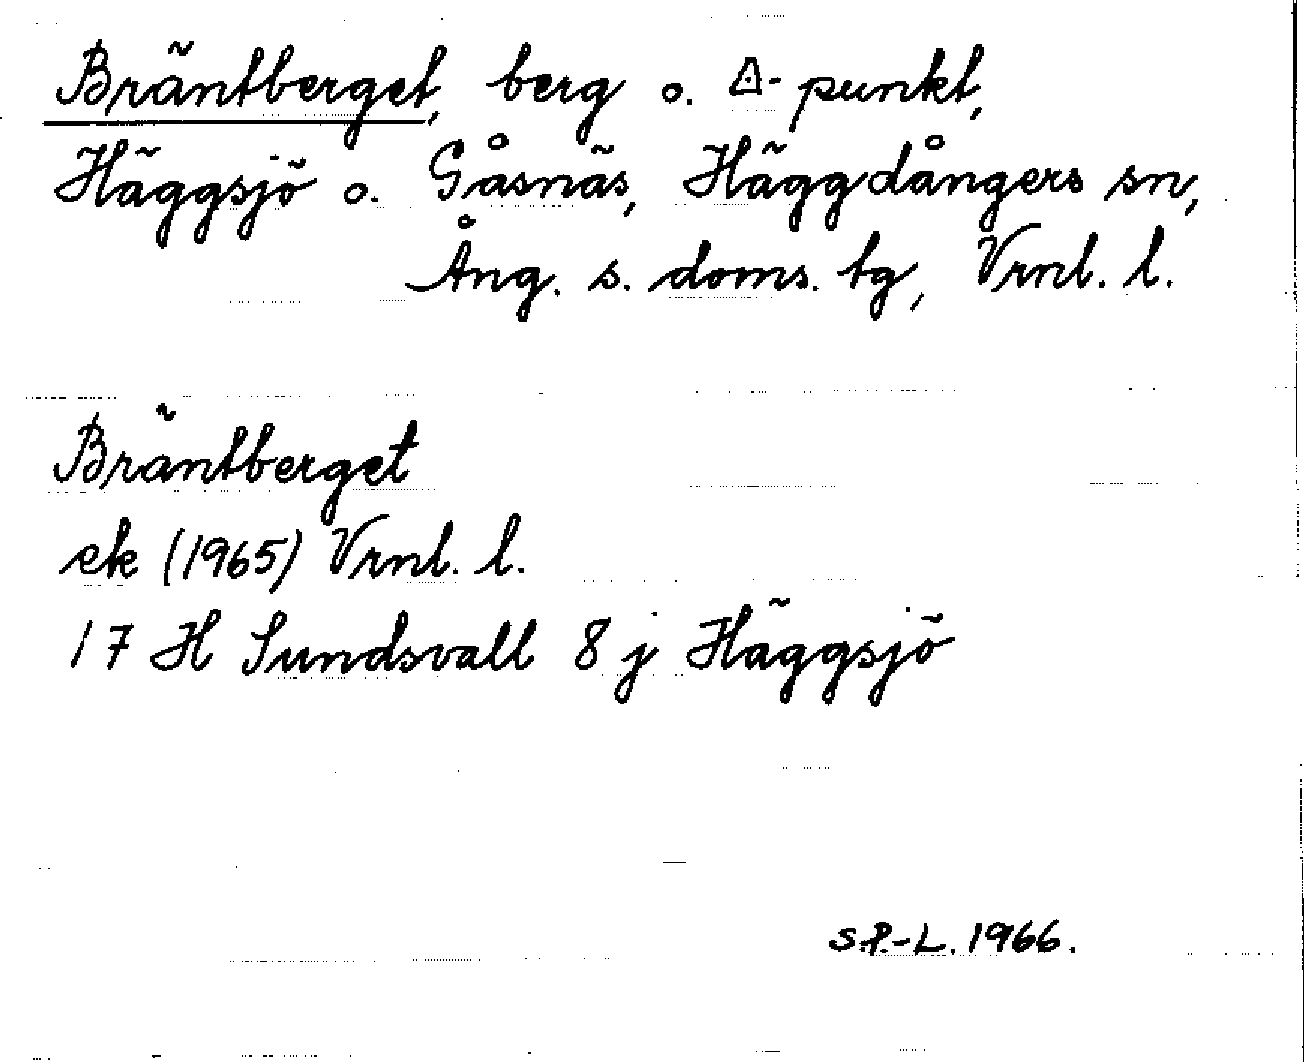 Bräntberget, berg o. ◬-punkt,
Häggsjö o. Gåsnäs, Häggdångers sn,
Ång. s. doms. tg, Vrnl. l.
Bräntberget
ek (1965) Vrnl. l.
17 H Sundsvall 8 j Häggsjö
S.P.-L. 1966.